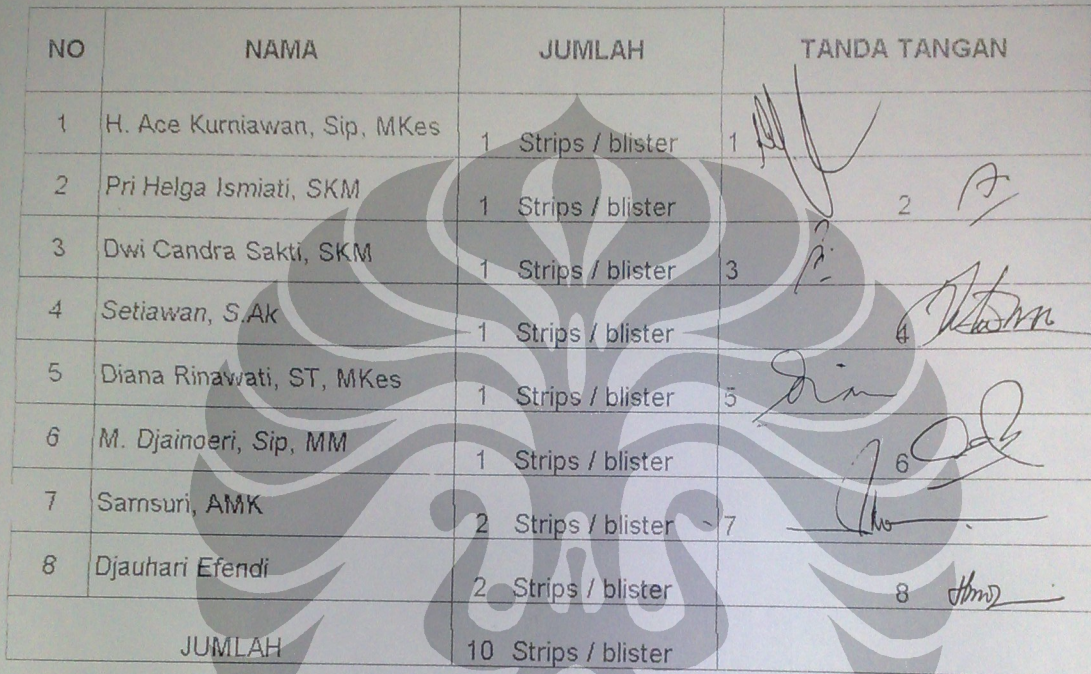 NO NAMA JUMLAH TANDA TANGAN
1 H. Ace Kurniawan, Sip, MKes 1 Strips / blister 1
2 Pri Helga Ismiati, SKM 1 Strips / blister 2
3 Dwi Candra Sakti, SKM 1 Strips / blister 3
4 Setiawan, S.Ak 1 Strips / blister 4
5 Diana Rinawati, ST, MKes 1 Strips / blister 5
6 M. Djainoeri, Sip, MM 1 Strips / blister 6
7 Samsuri, AMK 2 Strips / blister 7
8 Djauhari Efendi 2 Strips / blister 8
JUMLAH 10 Strips / blister